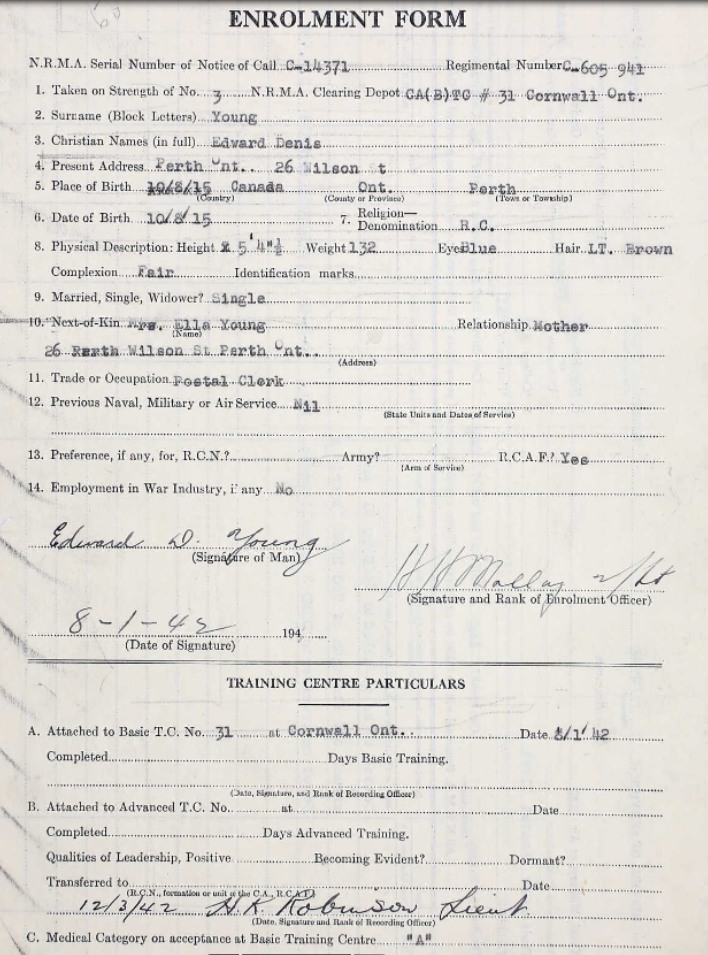 ENROLMENT FORM
N.R.M.A. Serial Number of Notice of Call C-14371 Regimental Number C-605 941
1. Taken on Strength of No. 3 N.R.M.A. Clearing Depot CA(B)TC # 31 Cornwall Ont.
2. Surname (Block Letters) Young
3. Christian Names (in full) Edward Denis
4. Present Address Perth Ont.. 26 Wilson St
5. Place of Birth 10/8/15 Canada Ont. Perth
(Country) (County or Province) (Town or Township)
6. Date of Birth 10/8/15 7. Religion—Denomination R.C.
8. Physical Description: Height 5'4"½ Weight 132 Eye Blue Hair LT. Brown
Complexion Fair Identification marks
9. Married, Single, Widower? Single
10. Next-of-Kin Mrs. Ella Young Relationship Mother
(Name)
26 Perth Wilson St Perth Ont..
(Address)
11. Trade or Occupation Postal Clerk
12. Previous Naval, Military or Air Service Nil
(State Units and Dates of Service)
13. Preference, if any, for, R.C.N.? Army? R.C.A.F.? Yes
(Arm of Service)
14. Employment in War Industry, if any No
Edward D. Young
(Signature of Man)
2/Lt
(Signature and Rank of Enrolment Officer)
8-1-42 194
(Date of Signature)
TRAINING CENTRE PARTICULARS
A. Attached to Basic T.C. No. 31 at Cornwall Ont.. Date 8/1/42
Completed Days Basic Training.
(Date, Signature, and Rank of Recording Officer)
B. Attached to Advanced T.C. No. at Date
Completed Days Advanced Training.
Qualities of Leadership, Positive Becoming Evident? Dormant?
Transferred to Date
(R.C.N., formation or unit of the C.A., R.C.A.F.)
12/3/42 H.K. Robinson Lieut.
(Date, Signature and Rank of Recording Officer)
C. Medical Category on acceptance at Basic Training Centre "A"